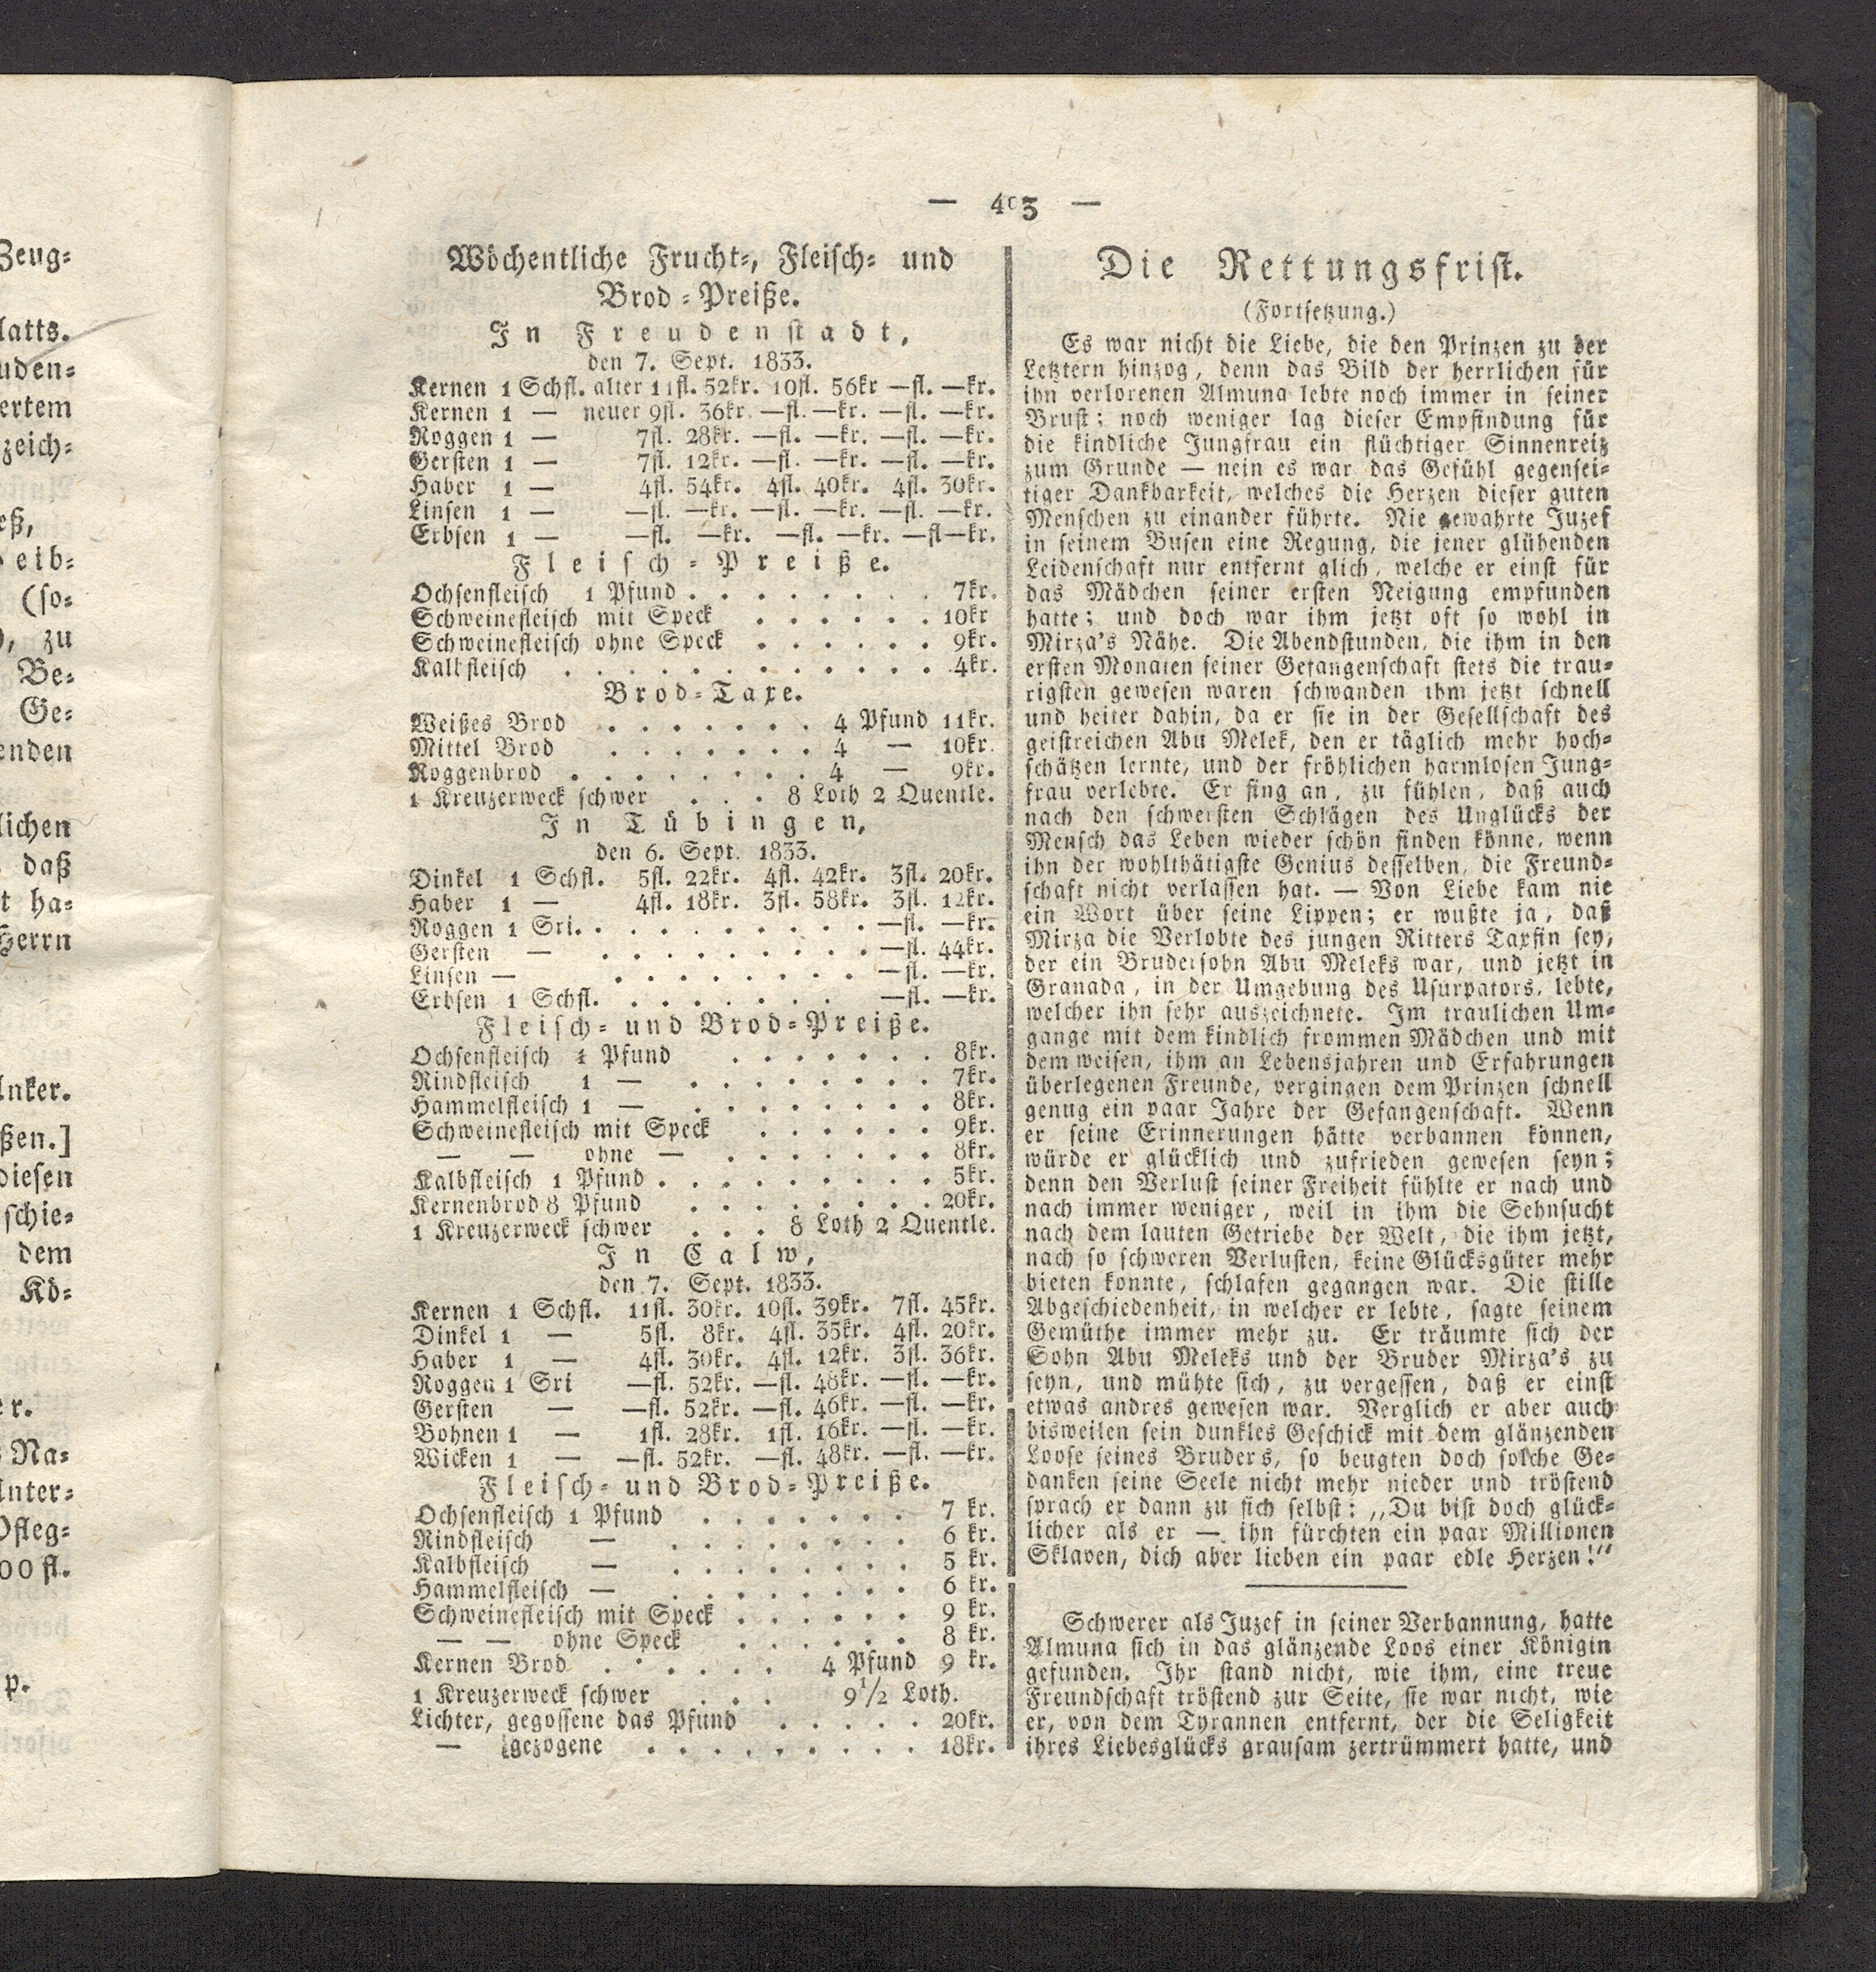 Zeug-
latts.
uden-
ertem
zeich-
eß,
eib-
(so-
), zu
Be-
Ge-
enden
lichen
daß
t ha-
Herrn
Anker.
ßen.]
diesen
schie-
dem
Kö-
er.
Na-
Unter-
Pfleg-
00 fl.
p.
— 403 —
Wöchentliche Frucht-, Fleisch- und
Brod-Preiße.
In Freudenstadt,
den 7. Sept. 1833.
Kernen 1 Schfl. alter 11fl. 52kr. 10fl. 56kr —fl. —kr.
Kernen 1 — neuer 9fl. 36kr. —fl. —kr. —fl. —kr.
Roggen 1 — 7fl. 28kr. —fl. —kr. —fl. —kr.
Gersten 1 — 7fl. 12kr. —fl. —kr. —fl. —kr.
Haber 1 — 4fl. 54kr. 4fl. 40kr. 4fl. 30kr.
Linsen 1 — —fl. —kr. —fl. —kr. —fl. —kr.
Erbsen 1 — —fl. —kr. —fl. —kr. —fl—kr.
Fleisch-Preiße.
Ochsenfleisch 1 Pfund . . . . . . . . 7kr.
Schweinefleisch mit Speck . . . . . . 10kr
Schweinefleisch ohne Speck . . . . . . 9kr.
Kalbfleisch . . . . . . . . . . . . 4kr.
Brod-Taxe.
Weißes Brod . . . . . . . 4 Pfund 11kr.
Mittel Brod . . . . . . . 4 — 10kr.
Roggenbrod . . . . . . . . 4 — 9kr.
1 Kreuzerweck schwer . . . 8 Loth 2 Quentle.
In Tübingen,
den 6. Sept. 1833.
Dinkel 1 Schfl. 5fl. 22kr. 4fl. 42kr. 3fl. 20kr.
Haber 1 — 4fl. 18kr. 3fl. 58kr. 3fl. 12kr.
Roggen 1 Sri. . . . . . . . . . . —fl. —kr.
Gersten — . . . . . . . . . —fl. 44kr.
Linsen — . . . . . . . . . —fl. —kr.
Erbsen 1 Schfl. . . . . . . . —fl. —kr.
Fleisch- und Brod-Preiße.
Ochsenfleisch 1 Pfund . . . . . . . 8kr.
Rindfleisch 1 — . . . . . . . . 7kr.
Hammelfleisch 1 — . . . . . . . . 8kr.
Schweinefleisch mit Speck . . . . . . 9kr.
— — ohne — . . . . . . . 8kr.
Kalbfleisch 1 Pfund . . . . . . . . . 5kr.
Kernenbrod 8 Pfund . . . . . . . . 20kr.
1 Kreuzerweck schwer . . . 8 Loth 2 Quentle.
In Calw,
den 7. Sept. 1833.
Kernen 1 Schfl. 11fl. 30kr. 10fl. 39kr. 7fl. 45kr.
Dinkel 1 — 5fl. 8kr. 4fl. 35kr. 4fl. 20kr.
Haber 1 — 4fl. 30kr. 4fl. 12kr. 3fl. 36kr.
Roggen 1 Sri —fl. 52kr. —fl. 48kr. —fl. —kr.
Gersten — —fl. 52kr. —fl. 46kr. —fl. —kr.
Bohnen 1 — 1fl. 28kr. 1fl. 16kr. —fl. —kr.
Wicken 1 — —fl. 52kr. —fl. 48kr. —fl. —kr.
Fleisch- und Brod-Preiße.
Ochsenfleisch 1 Pfund . . . . . . . 7 kr.
Rindfleisch — . . . . . . . . 6 kr.
Kalbfleisch — . . . . . . . . 5 kr.
Hammelfleisch — . . . . . . . . 6 kr.
Schweinefleisch mit Speck . . . . . . 9 kr.
— — ohne Speck . . . . . . 8 kr.
Kernen Brod . . . . . . 4 Pfund 9 kr.
1 Kreuzerweck schwer . . . 9 1/2 Loth.
Lichter, gegossene das Pfund . . . . . 20kr.
— gezogene . . . . . . . . . 18kr.
Die Rettungsfrist.
(Fortsetzung.)
Es war nicht die Liebe, die den Prinzen zu der
Letztern hinzog, denn das Bild der herrlichen für
ihn verlorenen Almuna lebte noch immer in seiner
Brust; noch weniger lag dieser Empfindung für
die kindliche Jungfrau ein flüchtiger Sinnenreiz
zum Grunde — nein es war das Gefühl gegensei-
tiger Dankbarkeit, welches die Herzen dieser guten
Menschen zu einander führte. Nie gewahrte Juzef
in seinem Busen eine Regung, die jener glühenden
Leidenschaft nur entfernt glich, welche er einst für
das Mädchen seiner ersten Neigung empfunden
hatte; und doch war ihm jetzt oft so wohl in
Mirza's Nähe. Die Abendstunden, die ihm in den
ersten Monaten seiner Gefangenschaft stets die trau-
rigsten gewesen waren schwanden ihm jetzt schnell
und heiter dahin, da er sie in der Gesellschaft des
geistreichen Abu Melek, den er täglich mehr hoch-
schätzen lernte, und der fröhlichen harmlosen Jung-
frau verlebte. Er fing an, zu fühlen, daß auch
nach den schwersten Schlägen des Unglücks der
Mensch das Leben wieder schön finden könne, wenn
ihn der wohlthätigste Genius desselben, die Freund-
schaft nicht verlassen hat. — Von Liebe kam nie
ein Wort über seine Lippen; er wußte ja, daß
Mirza die Verlobte des jungen Ritters Tarfin sey,
der ein Brudersohn Abu Meleks war, und jetzt in
Granada, in der Umgebung des Usurpators, lebte,
welcher ihn sehr auszeichnete. Im traulichen Um-
gange mit dem kindlich frommen Mädchen und mit
dem weisen, ihm an Lebensjahren und Erfahrungen
überlegenen Freunde, vergingen dem Prinzen schnell
genug ein paar Jahre der Gefangenschaft. Wenn
er seine Erinnerungen hätte verbannen können,
würde er glücklich und zufrieden gewesen seyn;
denn den Verlust seiner Freiheit fühlte er nach und
nach immer weniger, weil in ihm die Sehnsucht
nach dem lauten Getriebe der Welt, die ihm jetzt,
nach so schweren Verlusten, keine Glücksgüter mehr
bieten konnte, schlafen gegangen war. Die stille
Abgeschiedenheit, in welcher er lebte, sagte seinem
Gemüthe immer mehr zu. Er träumte sich der
Sohn Abu Meleks und der Bruder Mirza's zu
seyn, und mühte sich, zu vergessen, daß er einst
etwas andres gewesen war. Verglich er aber auch
bisweilen sein dunkles Geschick mit dem glänzenden
Loose seines Bruders, so beugten doch solche Ge-
danken seine Seele nicht mehr nieder und tröstend
sprach er dann zu sich selbst: „Du bist doch glück-
licher als er — ihn fürchten ein paar Millionen
Sklaven, dich aber lieben ein paar edle Herzen!“
Schwerer als Juzef in seiner Verbannung, hatte
Almuna sich in das glänzende Loos einer Königin
gefunden. Ihr stand nicht, wie ihm, eine treue
Freundschaft tröstend zur Seite, sie war nicht, wie
er, von dem Tyrannen entfernt, der die Seligkeit
ihres Liebesglücks grausam zertrümmert hatte, und